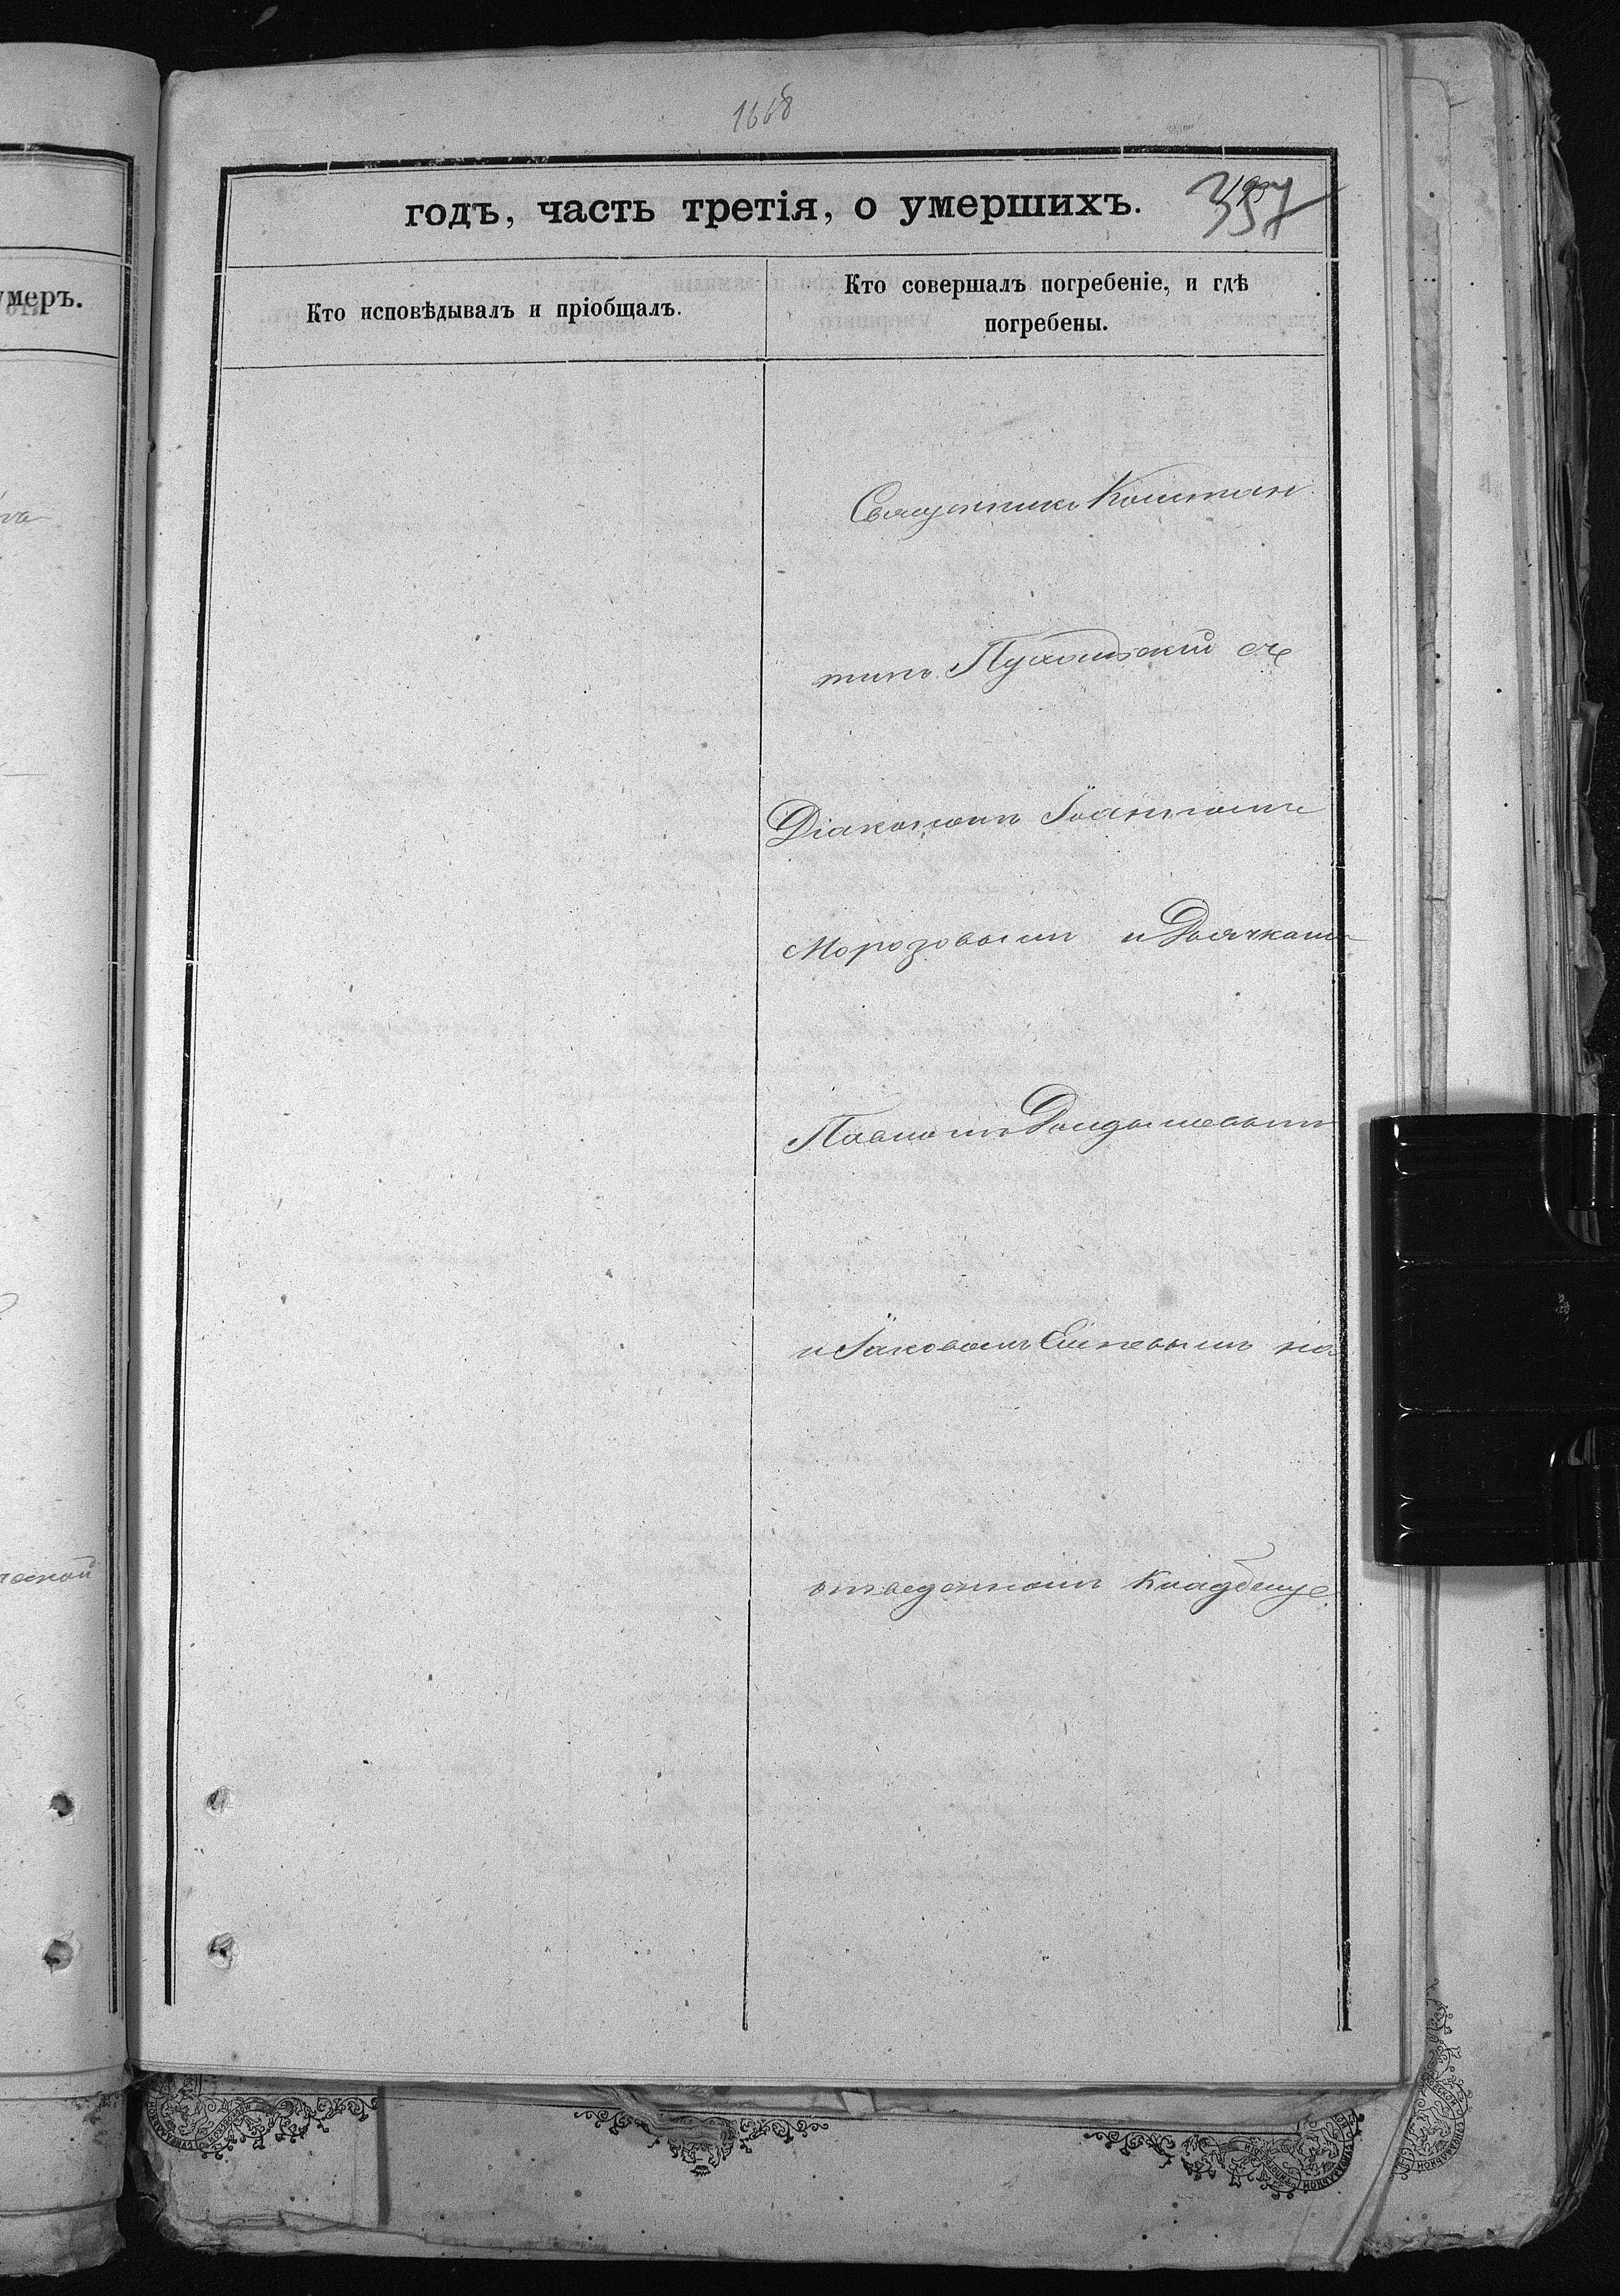 1668
годъ, часть третія, о умершихъ.
357
умеръ.
Кто исповѣдывалъ и пріобщалъ.
Кто совершалъ погребеніе, и гдѣ
погребены.
Священникъ Констан
тинъ съ
Діакономъ Іоанномъ
Морозовымъ и Дьячками
Павломъ
и Іаковомъ на
отведенномъ кладбище